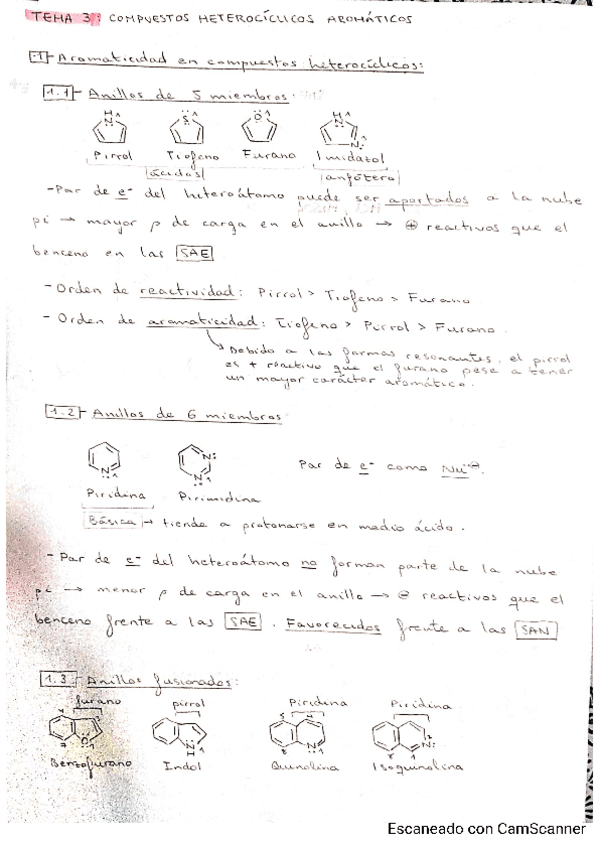 TEMA 3: COMPUESTOS HETEROCÍCLICOS AROMÁTICOS
1 Aromaticidad en compuestos heterocíclicos:
1.1 Anillos de 5 miembros
Pirrol Tiofeno Furano Imidazol
ácidos anfótero
-Par de e- del heteroátomo puede ser aportados a la nube
pi → mayor ρ de carga en el anillo → ⊕ reactivos que el
benceno en las SAE
- Orden de reactividad: Pirrol > Tiofeno > Furano
- Orden de aromaticidad: Tiofeno > Pirrol > Furano.
Debido a las formas resonantes, el pirrol
es + reactivo que el furano pese a tener
un mayor carácter aromático.
1.2 Anillos de 6 miembros
Par de e- como Nu:⊖.
Piridina Pirimidina
Básica → tiende a protonarse en medio ácido.
-Par de e- del heteroátomo no forman parte de la nube
pi → menor ρ de carga en el anillo → ⊖ reactivos que el
benceno frente a las SAE. Favorecidos frente a las SAN
1.3 Anillos fusionados:
furano pirrol Piridina Piridina
Benzofurano Indol Quinolina Isoquinolina
Escaneado con CamScanner